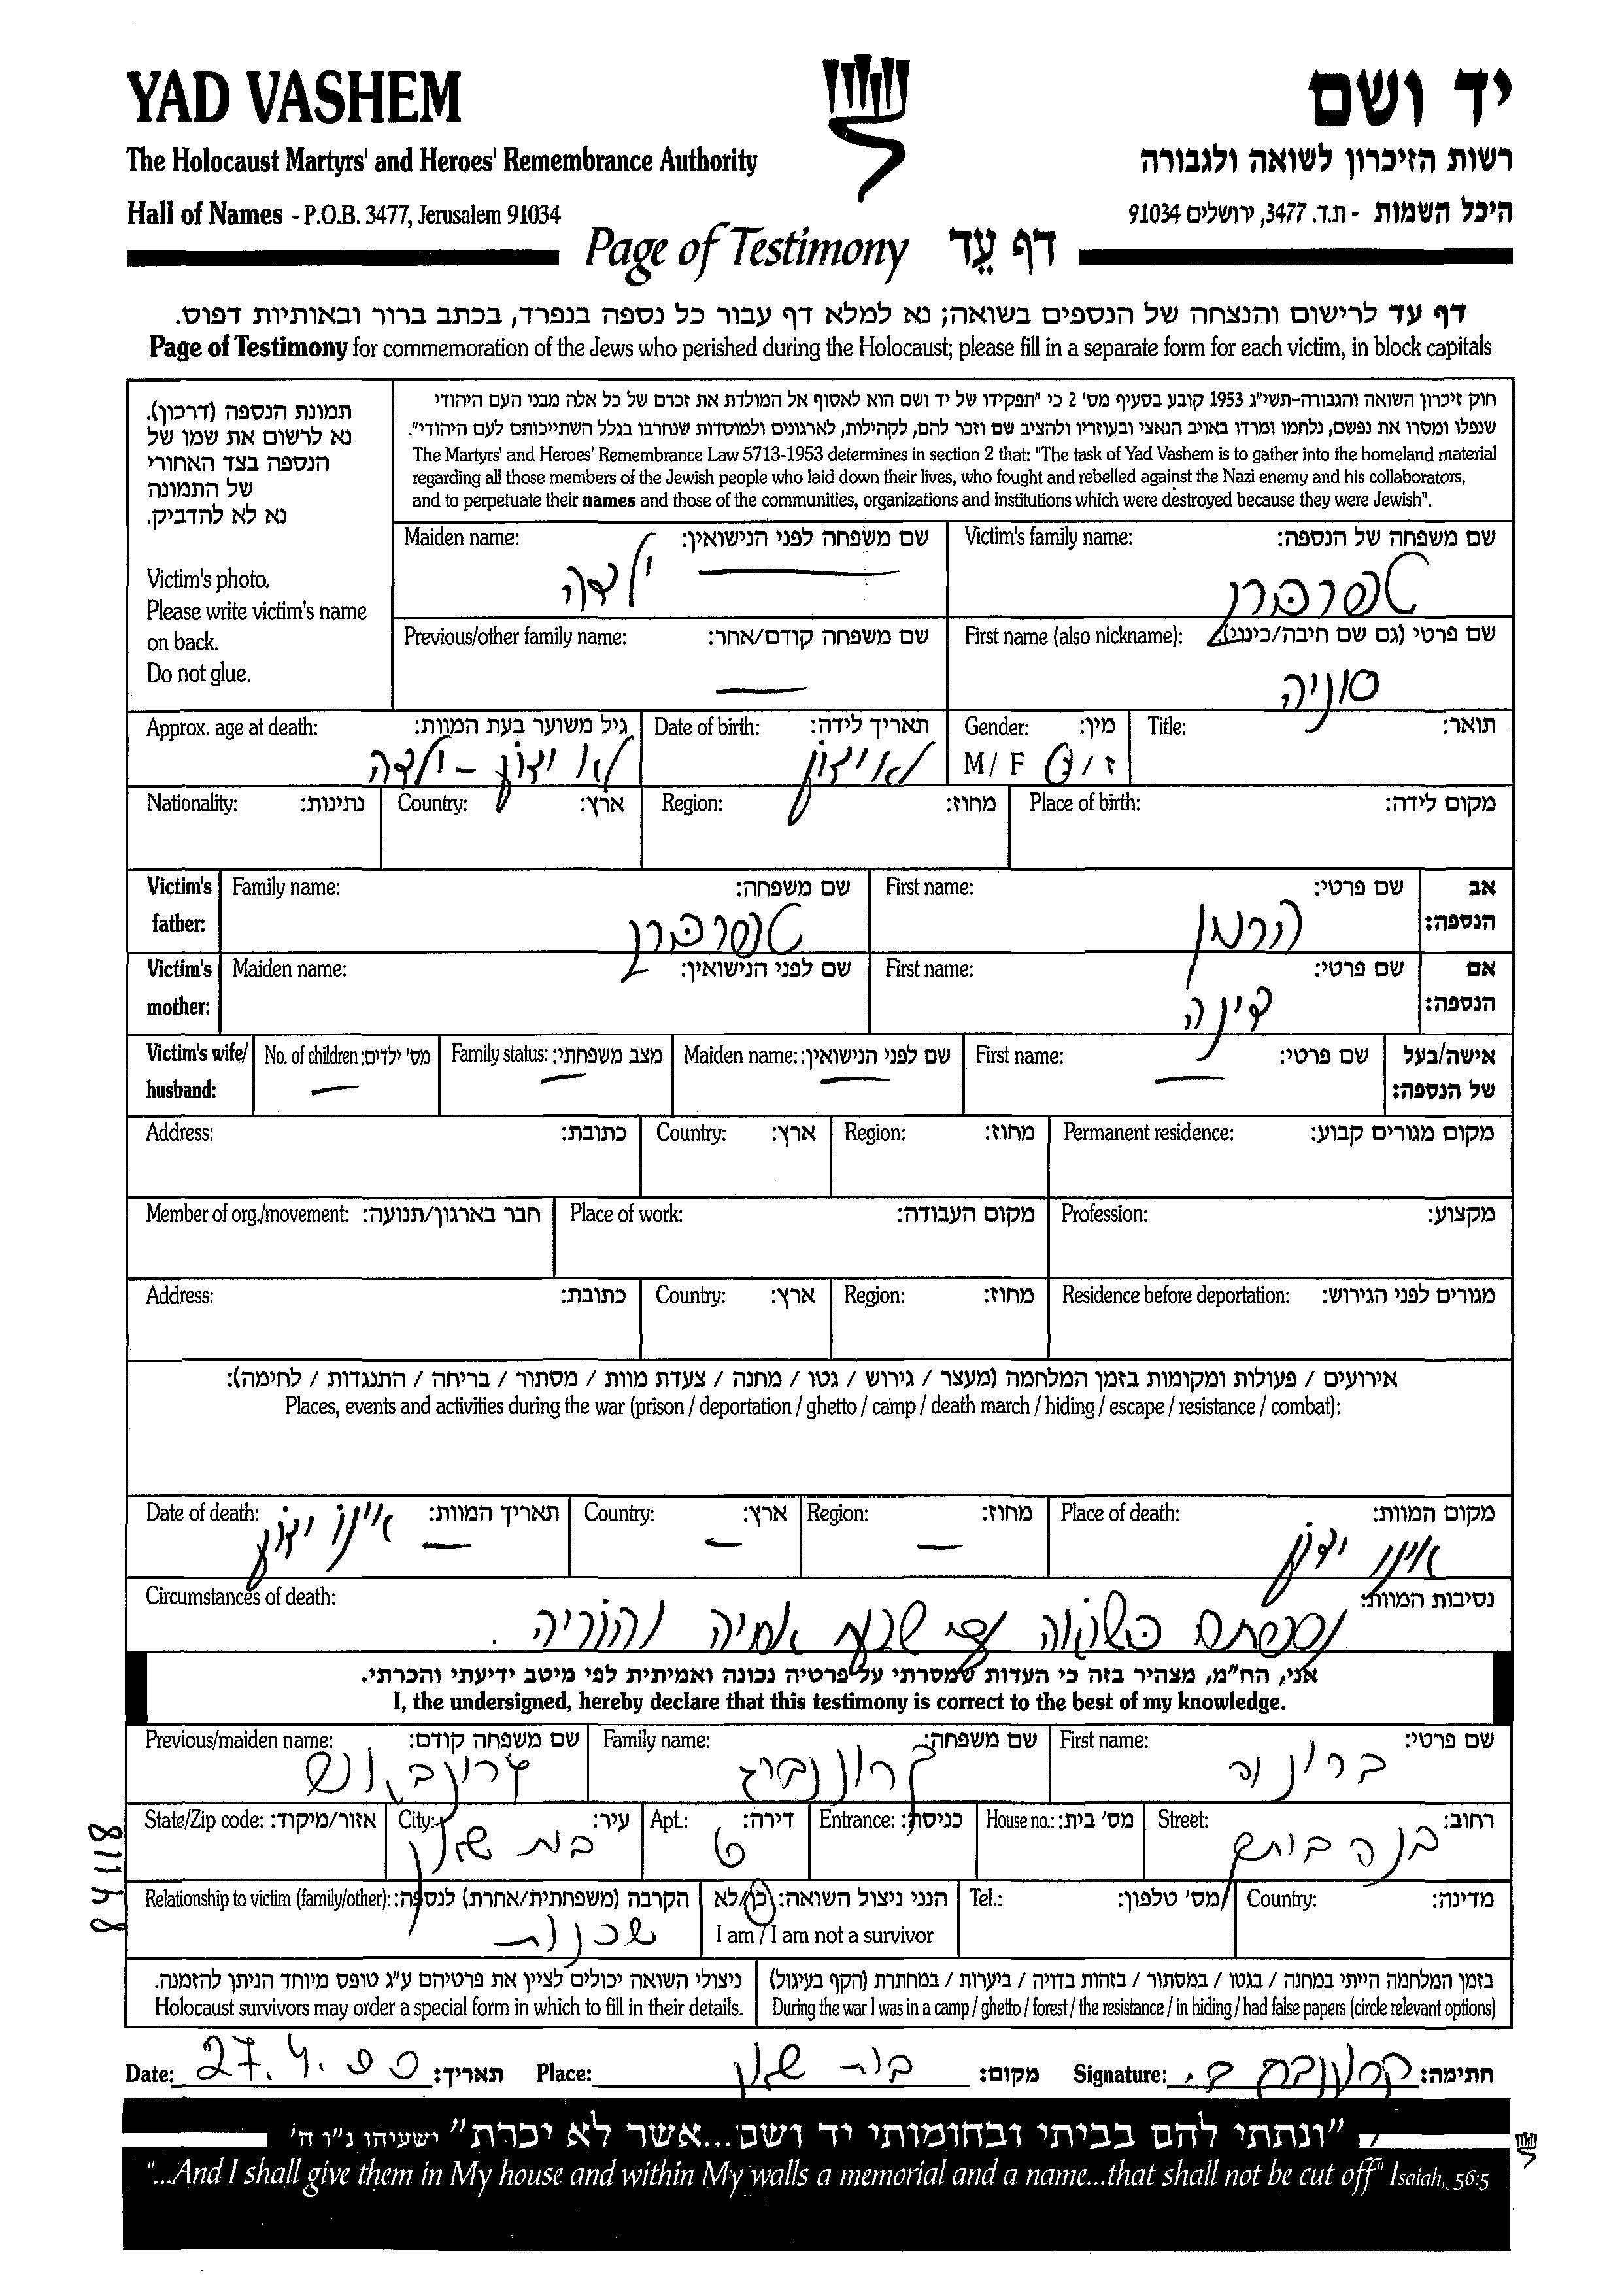 YAD VASHEM
יד ושם
The Holocaust Martyrs' and Heroes' Remembrance Authority
רשות הזיכרון לשואה ולגבורה
Hall of Names - P.O.B. 3477, Jerusalem 91034
היכל השמות - ת.ד. 3477, ירושלים 91034
Page of Testimony דף עֵד
דף עד לרישום והנצחה של הנספים בשואה; נא למלא דף עבור כל נספה בנפרד, בכתב ברור ובאותיות דפוס.
Page of Testimony for commemoration of the Jews who perished during the Holocaust; please fill in a separate form for each victim, in block capitals
תמונת הנספה (דרכון).
נא לרשום את שמו של
הנספה בצד האחורי
של התמונה
נא לא להדביק.
Victim's photo.
Please write victim's name
on back.
Do not glue.
חוק זיכרון השואה והגבורה-תשי"ג 1953 קובע בסעיף מס' 2 כי "תפקידו של יד ושם הוא לאסוף אל המולדת את זכרם של כל אלה מבני העם היהודי
שנפלו ומסרו את נפשם, נלחמו ומרדו באויב הנאצי ובעוזריו ולהציב שם וזכר להם, לקהילות, לארגונים ולמוסדות שנחרבו בגלל השתייכותם לעם היהודי".
The Martyrs' and Heroes' Remembrance Law 5713-1953 determines in section 2 that: "The task of Yad Vashem is to gather into the homeland material
regarding all those members of the Jewish people who laid down their lives, who fought and rebelled against the Nazi enemy and his collaborators,
and to perpetuate their names and those of the communities, organizations and institutions which were destroyed because they were Jewish".
Victim's family name: שם משפחה של הנספה:
Maiden name: שם משפחה לפני הנישואין:
טפרברג
ילדה
First name (also nickname): שם פרטי (גם שם חיבה/כינוי):
Previous/other family name: שם משפחה קודם/אחר:
סוניה
Title: תואר:
Gender: מין:
Date of birth: תאריך לידה:
Approx. age at death: גיל משוער בעת המוות:
M / F ז / נ
לא ידוע
לא ידוע - ילדה
Place of birth: מקום לידה:
Region: מחוז:
Country: ארץ:
Nationality: נתינות:
Victim's father: אב הנספה:
First name: שם פרטי:
הרמן
Family name: שם משפחה:
טפרברג
Victim's mother: אם הנספה:
First name: שם פרטי:
דינה
Maiden name: שם לפני הנישואין:
Victim's wife/ husband: אישה/בעל של הנספה:
First name: שם פרטי:
Maiden name: שם לפני הנישואין:
Family status: מצב משפחתי:
No. of children: מס' ילדים:
Permanent residence: מקום מגורים קבוע:
Region: מחוז:
Country: ארץ:
Address: כתובת:
Profession: מקצוע:
Place of work: מקום העבודה:
Member of org./movement: חבר בארגון/תנועה:
Residence before deportation: מגורים לפני הגירוש:
Region: מחוז:
Country: ארץ:
Address: כתובת:
אירועים / פעולות ומקומות בזמן המלחמה (מעצר / גירוש / גטו / מחנה / צעדת מוות / מסתור / בריחה / התנגדות / לחימה):
Places, events and activities during the war (prison / deportation / ghetto / camp / death march / hiding / escape / resistance / combat):
Place of death: מקום המוות:
אינו ידוע
Region: מחוז:
Country: ארץ:
Date of death: תאריך המוות:
אינו ידוע
Circumstances of death: נסיבות המוות:
נספתה בשואה עם שאר אחיה והוריה.
אני, הח"מ, מצהיר בזה כי העדות שמסרתי על פרטיה נכונה ואמיתית לפי מיטב ידיעתי והכרתי.
I, the undersigned, hereby declare that this testimony is correct to the best of my knowledge.
First name: שם פרטי:
ברוניה
Family name: שם משפחה:
Previous/maiden name: שם משפחה קודם:
Street: רחוב:
House no.: מס' בית:
Entrance: כניסה:
Apt.: דירה:
6
City: עיר:
בית שאן
State/Zip code: אזור/מיקוד:
Country: מדינה:
Tel.: מס' טלפון:
הנני ניצול השואה: כן/לא
I am / I am not a survivor
Relationship to victim (family/other): הקרבה (משפחתית/אחרת) לנספה:
שכנות
84118
בזמן המלחמה הייתי במחנה / בגטו / במסתור / בזהות בדויה / ביערות / במחתרת (הקף בעיגול)
During the war I was in a camp / ghetto / forest / the resistance / in hiding / had false papers (circle relevant options)
ניצולי השואה יכולים לציין את פרטיהם ע"ג טופס מיוחד הניתן להזמנה.
Holocaust survivors may order a special form in which to fill in their details.
Date: 27.4.00 תאריך:
Place: בית שאן מקום:
Signature: חתימה:
"ונתתי להם בביתי ובחומותי יד ושם...אשר לא יכרת" ישעיהו נ"ו ה'
"...And I shall give them in My house and within My walls a memorial and a name...that shall not be cut off" Isaiah, 56:5